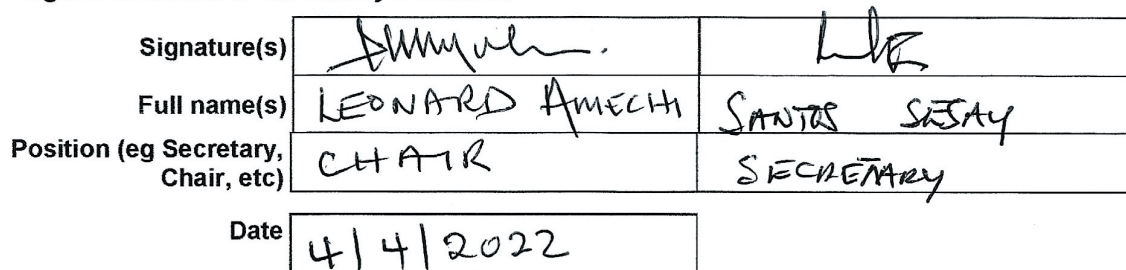 Signature(s)
Full name(s) LEONARD AMECHI SANTOS SESAY
Position (eg Secretary, CHAIR SECRETARY
Chair, etc)
Date 4/4/2022